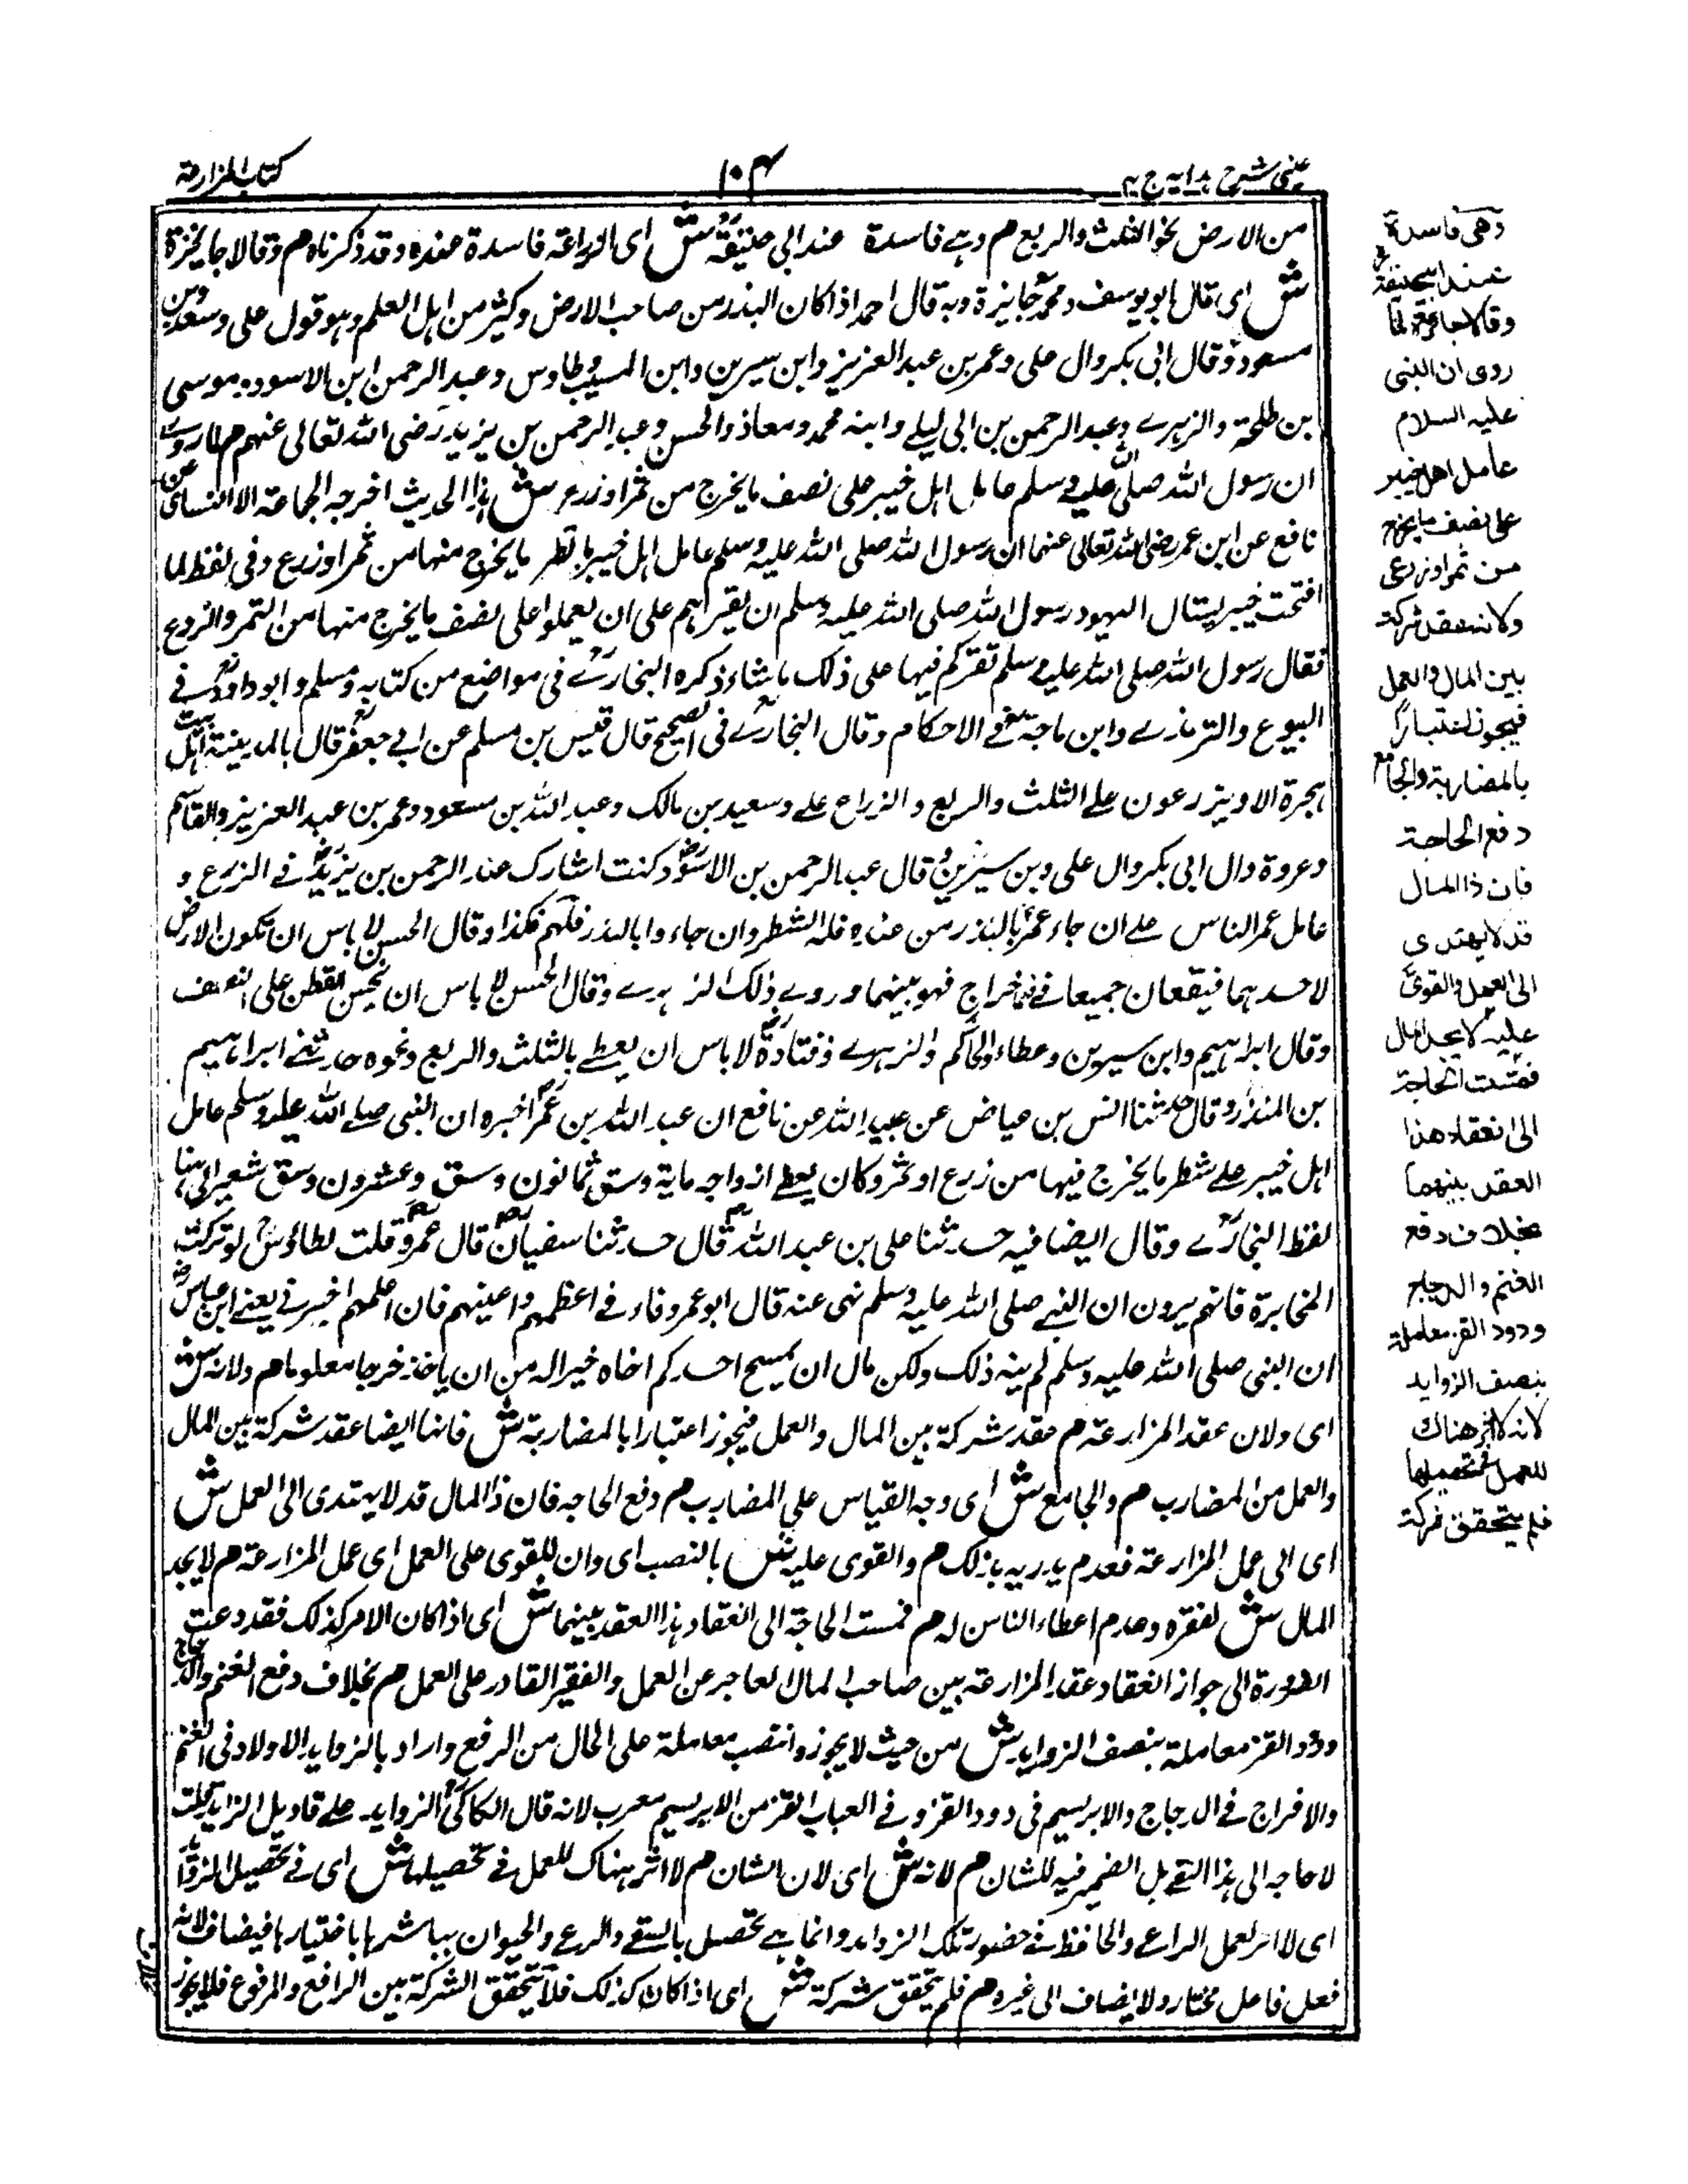 عینی شرح هدایه ج ۴
۱۰۴
کتاب المزارعة
من الارض نحو الثلث والربع م وهے فاسدة عند ابی حنیفة ش ای المزارعة فاسدة عنده وقد ذکرناه م وقالا جایزة
ش ای قال ابو یوسف ومحمد جایزة وبه قال احمد اذا کان البذر من صاحب الارض وکثیر من اهل العلم وهو قول علی وسعد وبن
مسعود وقال ابی بکر وال علی وعمر بن عبد العزیز وابن سیرین وابن المسیب وطاوس وعبد الرحمن ابن الاسود وموسی
بن طلحة والزهرے وعبد الرحمن بن ابی لیلے وابنه محمد ومعاذ والحسن وعبد الرحمن بن یزید رضی الله تعالی عنهم م لما روے
ان رسول الله صلی الله علیه وسلم عامل اهل خیبر علی نصف مایخرج من ثمر او زرع ش هذا الحدیث اخرجه الجماعة الا النسائی عن
نافع عن ابن عمر رضی الله تعالی عنهما ان رسول الله صلی الله علیه وسلم عامل اهل خیبر بالشطر مایخرج منها من ثمر او زرع وفی لفظ لما
افتتحت خیبر یسال الیهود رسول الله صلی الله علیه وسلم ان یقیرهم علی ان یعملوا علی نصف مایخرج منها من الثمر والزرع
فقال رسول الله صلی الله علیه وسلم نقرکم فیها علی ذلک ماشاء ذکره البخارے فی مواضع من کتابه ومسلم وابو داود فے
البیوع والترمذے وابن ماجة فے الاحکام وقال البخارے فی الصحیح قال قیس بن مسلم عن ابے جعفر قال بالمدینة اهل بیت
هجرة الا ویزرعون علے الثلث والربع والزراع علے وسعید بن مالک وعبد الله بن مسعود وعمر بن عبد العزیز والقاسم
وعروة وال ابی بکر وال علی وبن سیرین قال عبد الرحمن بن الاسود کنت اشارک عند الرحمن بن یزید فے الزرع و
عامل عمر الناس علے ان جاء عمر بالبذر من عنده فله الشطر وان جاءوا بالبذر فلهم فکذا وقال الحسن لا باس ان تکون الارض
لاحدهما فیقعان جمیعا فے فما خراج فهو بینهما وروے ذلک الزهرے وقال الحسن لا باس ان یجیس القطن علی النصف
وقال ابراهیم وابن سیرین وعطاء والحاکم والزهرے وقتادة لا باس ان یعطے بالثلث والربع ونحوه حدثنے ابراهیم
بن المنذر وقال حدثنا انس بن عیاض عن عبید الله عن نافع ان عبد الله بن عمر اخبره ان النبی صلے الله علیه وسلم عامل
اهل خیبر علے شطر مایخرج فیها من زرع او ثمر وکان یعطے ازواجه مایة وسق ثمانون وسق وعشرون وسق شعیر الی هنا
لفظ البخارے وقال ایضا فیه حدثنا علی بن عبد الله قال حدثنا سفیان قال عمرو قلت لطاؤس لو ترکت
المخابرة فانهم یرون ان النبے صلی الله علیه وسلم نهی عنه قال ابو عمرو فاء فے اعظمهم واعینهم فان اعلمهم اخبرنے یعنے ابن عباس
ان النبی صلی الله علیه وسلم لم ینه ذلک ولکن مال ان یمیح احدکم اخاه خیر اله من ان یاخذ خرجا معلوما م ولانه ش
ای ولان عقد المزارعة م عقد شرکة بین المال والعمل فیجوز اعتبارا بالمضاربة ش فانها ایضا عقد شرکة بین المال
والعمل من المضارب م والجامع ش ای وجه القیاس علی المضارب م دفع الحاجه فان ذا المال قد لا یهتدی الی العمل ش
ای الی عمل المزارعة فعدم یدریه بذلک م والقوی علیه ش بالنصب ای وان للقوی علی العمل ای عمل المزارعة م لا یجد
المال ش لفقره وعدم اعطاء الناس له م فمست الحاجة الی انعقاد هذا العقد بینهما ش ای اذا کان الامر کذلک فقد دعت
الضرورة الی جواز انعقاد عقد المزارعة بین صاحب المال العاجز عن العمل والفقیر القادر علی العمل م بخلاف دفع الغنم والدجاج
ودود القز معاملة بنصف الزواید ش من حیث لا یجوز وانتصب معاملة علی الحال من الرفع واراد بالزواید الاولاد فی الغنم
والافراج فے الدجاج والابریسم فی دود القز وفے العباب القز من الابریسم معرب لانه قال الکاکی الزواید علے قاویل الزاید قلت
لا حاجه الی هذا التقے بل الضمیر فیه للشان م لانه ش ای لان الشان م لا اثر هناک للعمل فے تحصیلها ش ای فے تحصیل الزواید
ای لا اثر لعمل الراعے والحافظ فے حضور تلک الزواید وانما هے تحصل بالسقے والرعے والحیوان یباشرها باختیارها فیضاف لانه
فعل فاعل مختار ولا یضاف الی غیره م فلم یتحقق شرکة ش ای اذا کان کذلک فلا یتحقق الشرکة بین الرافع والمرفوع فلا یجوز
وهی فاسدة
عند ابیحنیفة
وقالا جائزة لما
روی ان النبی
علیه السلام
عامل اهل خیبر
علی نصف مایخرج
من ثمر او زرع
ولانه عقد شرکة
بین المال والعمل
فیجوز اعتبارا
بالمضاربة والجامع
دفع الحاجة
فان ذا المال
قد لا یهتدی
الی العمل والقوی
علیه لا یجد المال
فمست الحاجة
الی انعقاد هذا
العقد بینهما
بخلاف دفع
الغنم والدجاج
ودود القز معاملة
بنصف الزواید
لانه لا اثر هناک
للعمل فی تحصیلها
فلم یتحقق شرکة